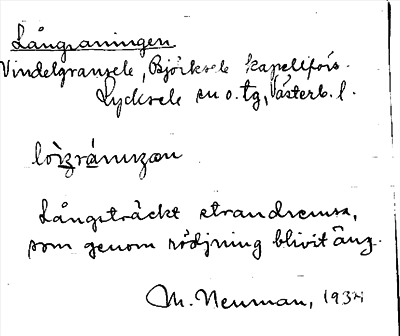 Långraningen
Vindelgransele, Björksele kapellförs.
Lycksele sn o. tg, Västerb. l.
Långsträckt strandremsa,
som genom rödjning blivit äng.
M. Neuman, 193